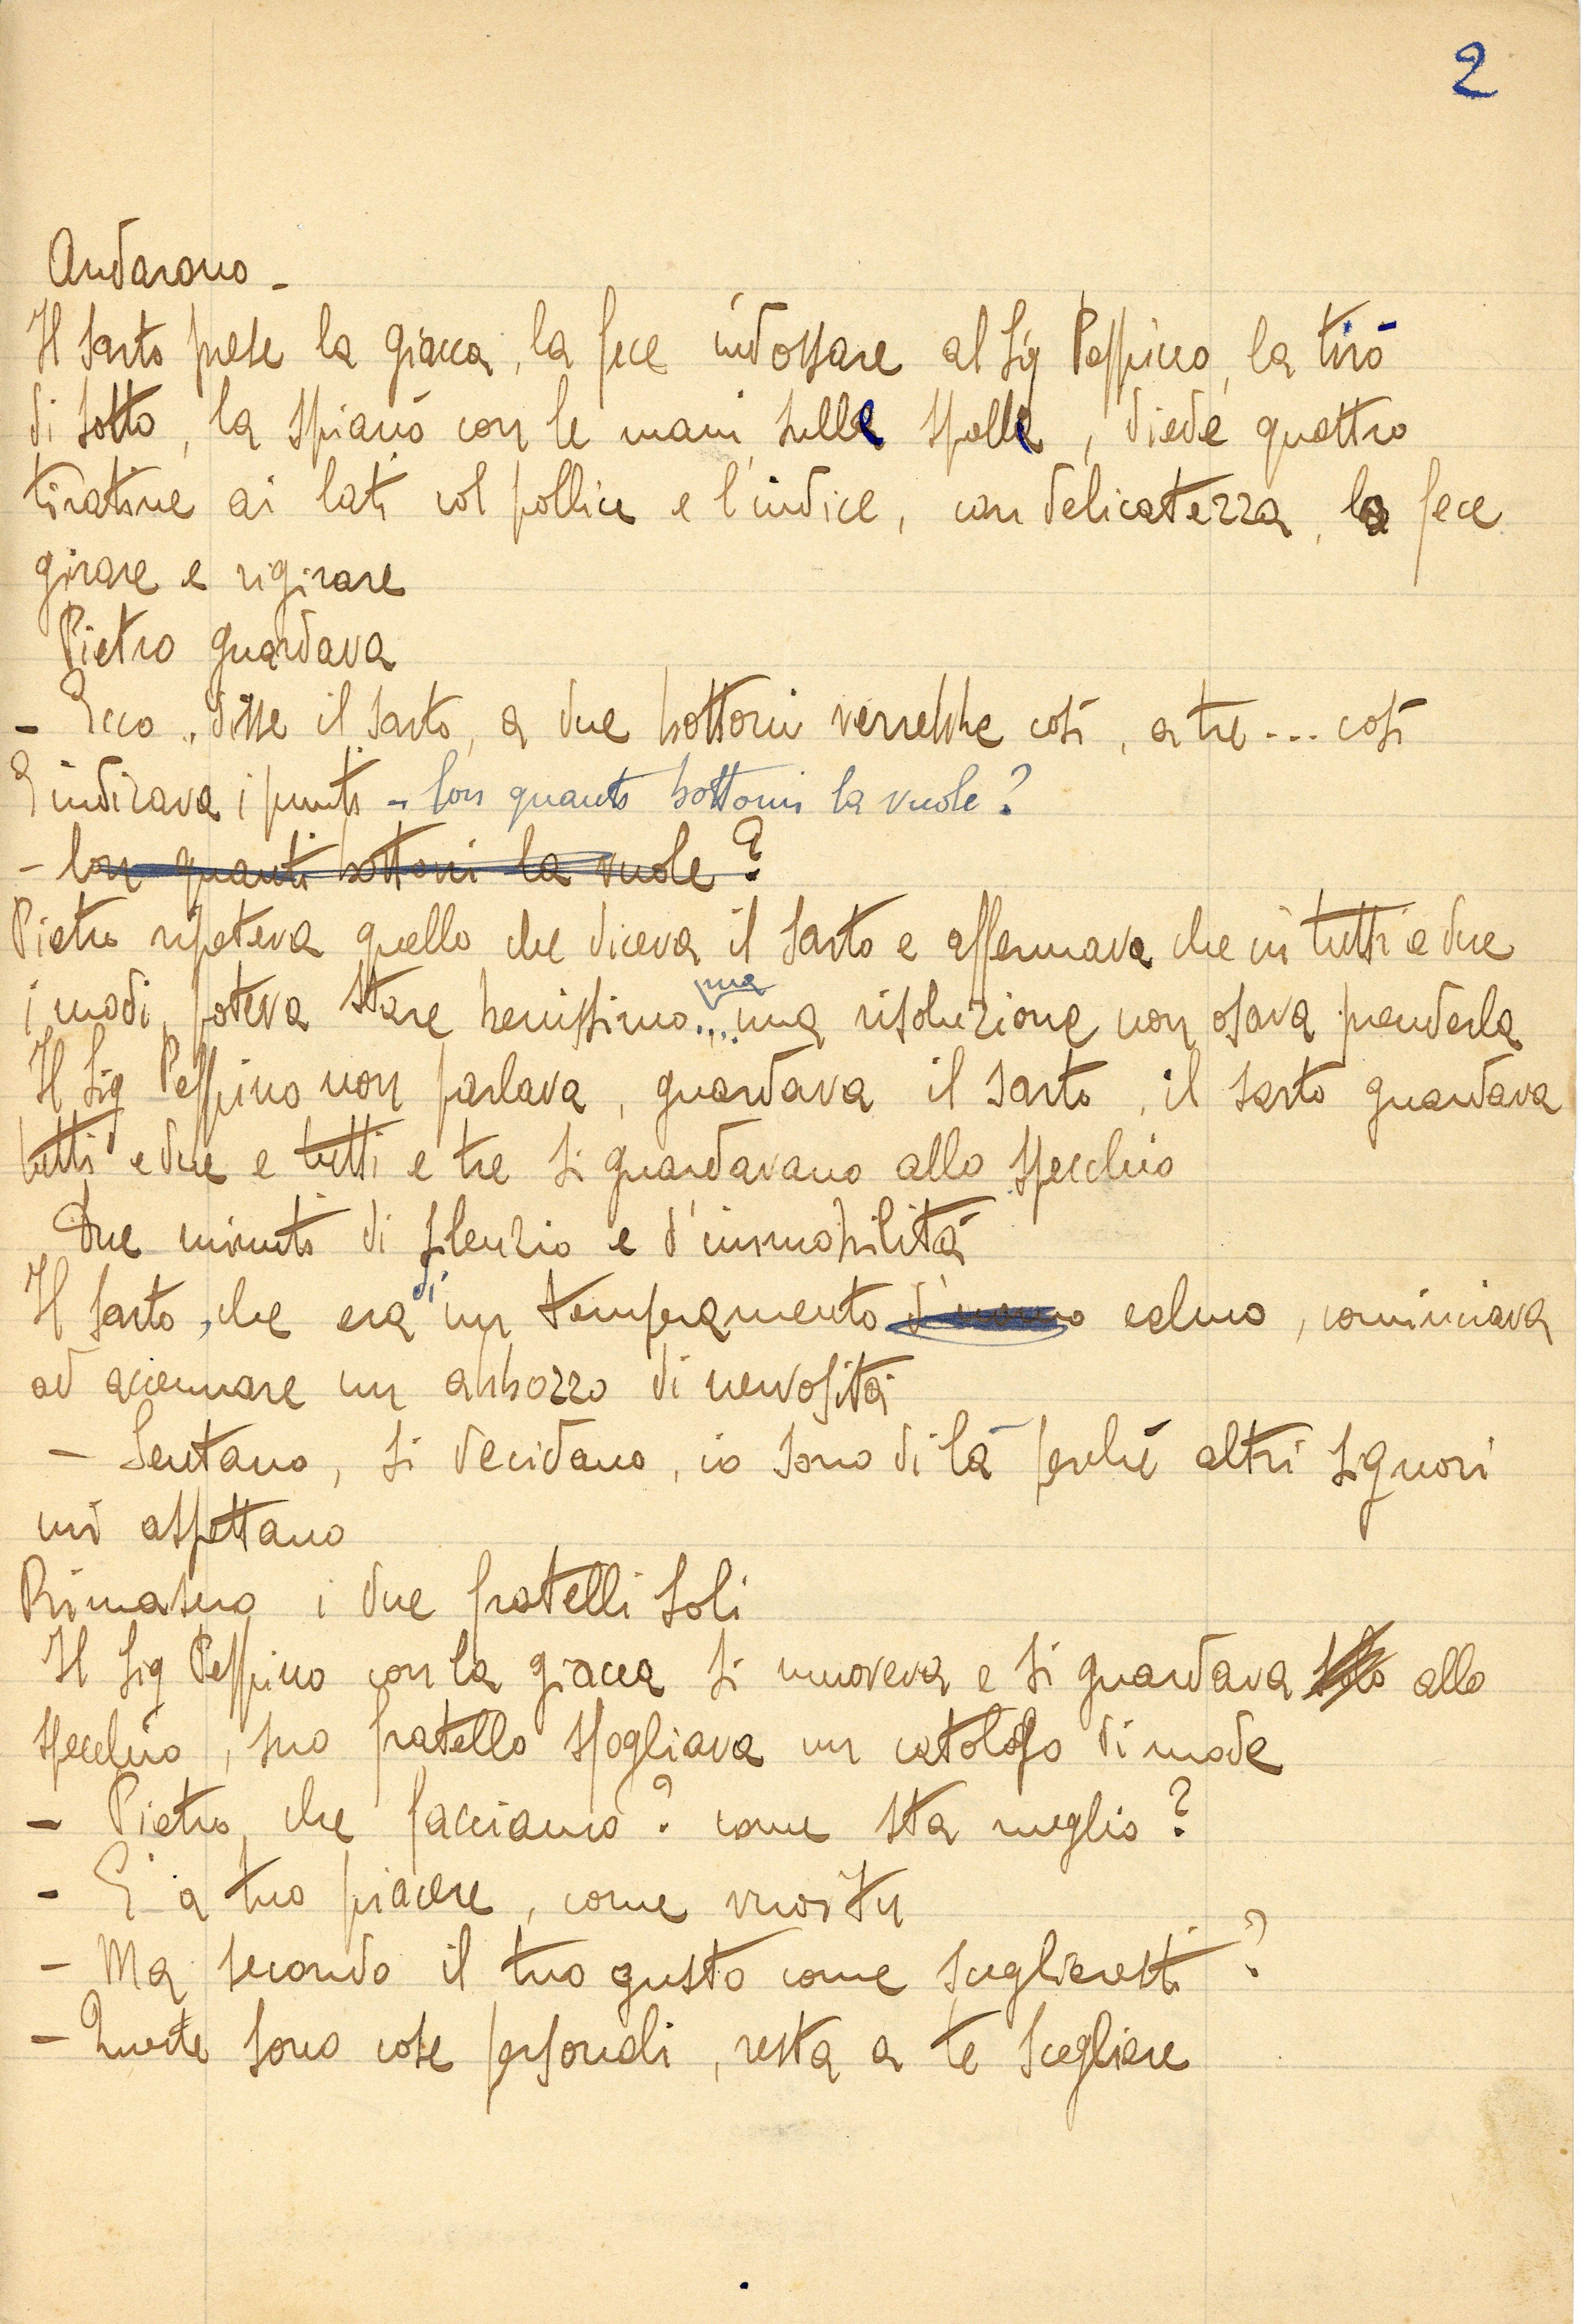 2
Andarono -
Il sarto prese la giacca, la fece indossare al Sig Peppino, la tirò
di sotto, la spianò con le mani sulle spalle, diede quattro
tiratine ai lati col pollice e l'indice, con delicatezza, lo fece
girare e rigirare
Pietro guardava
- Ecco, disse il sarto, a due bottoni verrebbe così, a tre... così
E indicava i punti - Con quanti bottoni la vuole?
- Con quanti bottoni la vuole?
Pietro ripeteva quello che diceva il sarto e affermava che in tutti e due
i modi, poteva stare benissimo... ma una risoluzione non osava prenderla
Il Sig Peppino non parlava, guardava il sarto, il sarto guardava
tutti e due e tutti e tre si guardavano allo specchio
Due minuti di silenzio e d'immobilità
Il sarto, che era di un temperamento calmo, cominciava
ad accennare un abbozzo di nervosità
- Sentano, si decidano, io sono di là perché altri signori
mi aspettano
Rimasero i due fratelli soli
Il Sig Peppino con la giacca si muoveva e si guardava allo
specchio, suo fratello sfogliava un catologo di mode
- Pietro, che facciamo? come sta meglio?
- E' a tuo piacere, come vuoi tu
- Ma secondo il tuo gusto come sceglieresti?
- Queste sono cose personali, resta a te scegliere